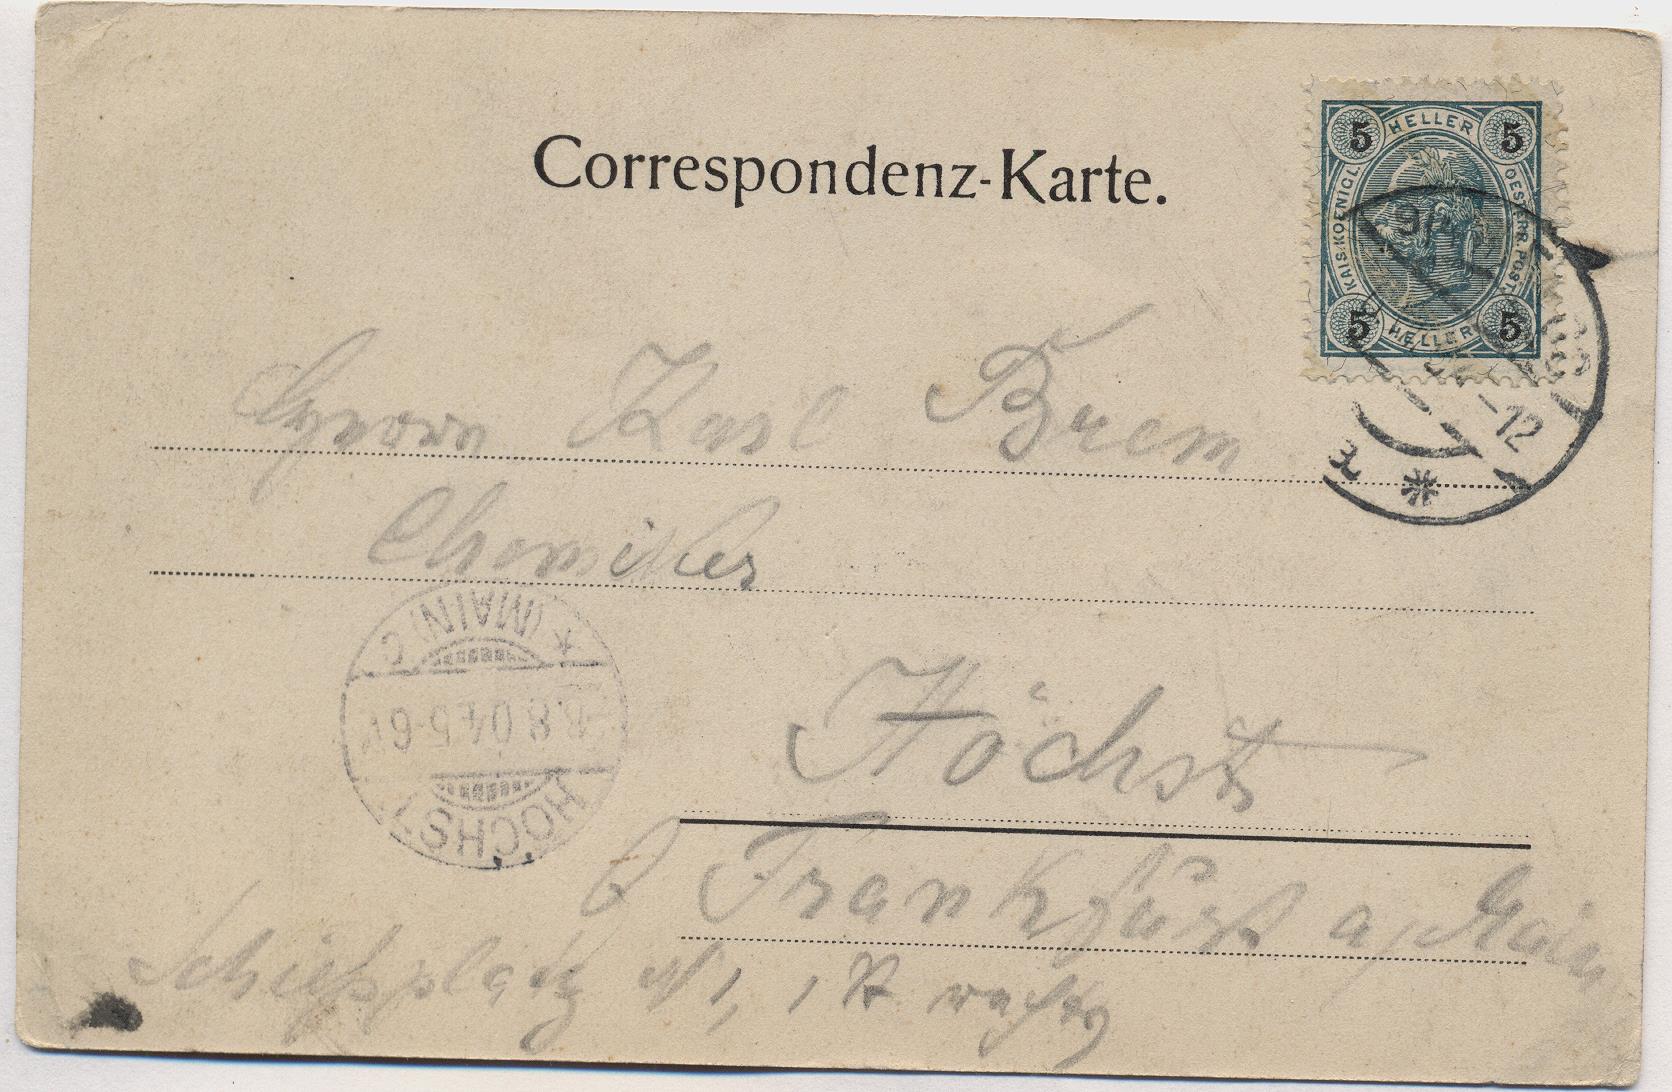 Correspondenz-Karte.
5 HELLER 5
KAIS. KOENIGL. OESTERR. POST.
5 HELLER 5
9/
-12
Herrn Karl Brem
Chemiker
(MAIN) C
8.8.04.5-6
HÖCHST
Höchst
b Frankfurt a/Main
Schießplatz N 1, I rechts